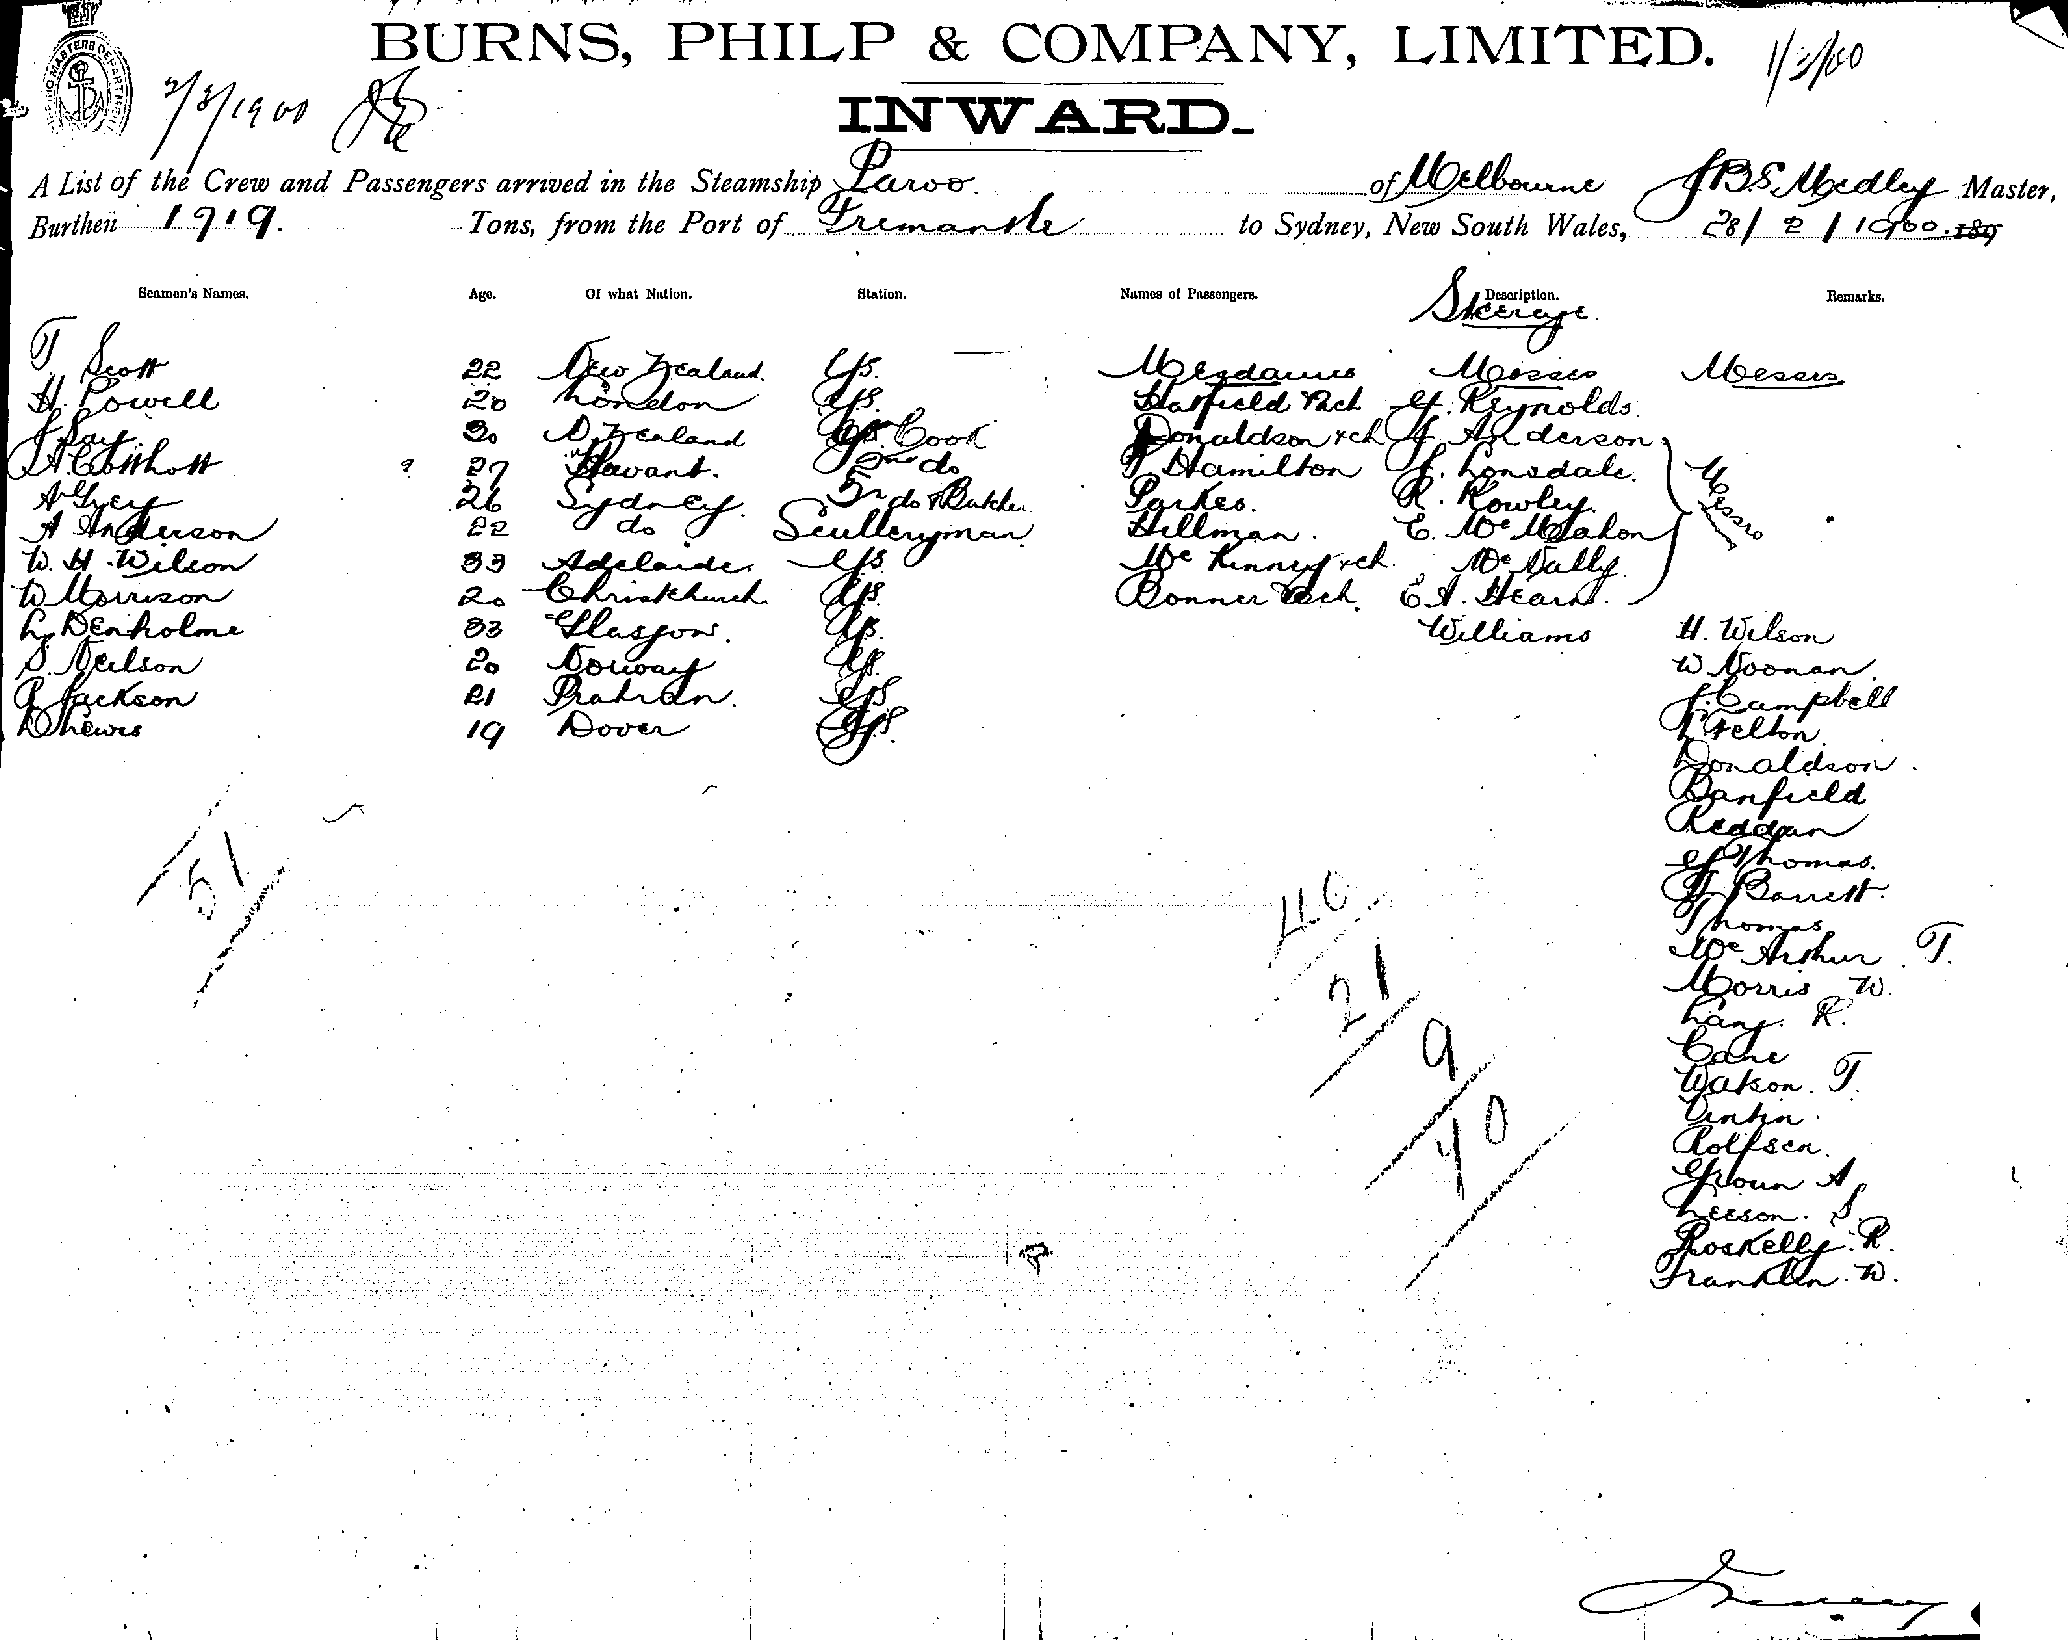 BURNS, PHILP & COMPANY, LIMITED. 1/3/00
2/3/1900
INWARD.
A List of the Crew and Passengers arrived in the Steamship Paroo. of Melbourne J B S Medley Master,
Burthen 1919. Tons, from the Port of Fremantle to Sydney, New South Wales, 28/2/1900. 189
Seamen's Names. Age. Of what Nation. Station. Names of Passengers. Description. Remarks.
Steerage.
T Scott 22 New Zealand. G/S. Mesdames Messrs Messrs
H. Powell 20 London G/S. Hatfield & ch G. Reynolds.
J Say. 30 N. Zealand Cook Donaldson & ch J. Anderson
27 Havant. 2nd do Hamilton J. Lonsdale. Messrs
A Grey 26 Sydney. 3r do & Butcher Parkes. R. Rowley.
A Anderson 22 do Sculleryman Hillman. E. McMahon
W. H. Wilson 33 Adelaide. G/S. McKinney & ch. McNally.
W Morrison 20 Christchurch. G/S. Bonner & ch. E A. Hearn.
L. Denholme 33 Glasgow. G/S. Williams H. Wilson
S. Neilson 20 Norway G/S. W Noonan.
P Jackson 21 Prahran. G/S. J. Campbell
D Lewis 19 Dover G/S. Felton
Donaldson.
Banfield
Reddan
G Thomas.
Barrett.
Thomas
McArthur. T.
Morris W.
Lang. R.
Cane
Watson. T.
Rolfsen.
Groun A
Leeson. S.
Roskelly. R.
Franklin. W.
51
40
21
9
70